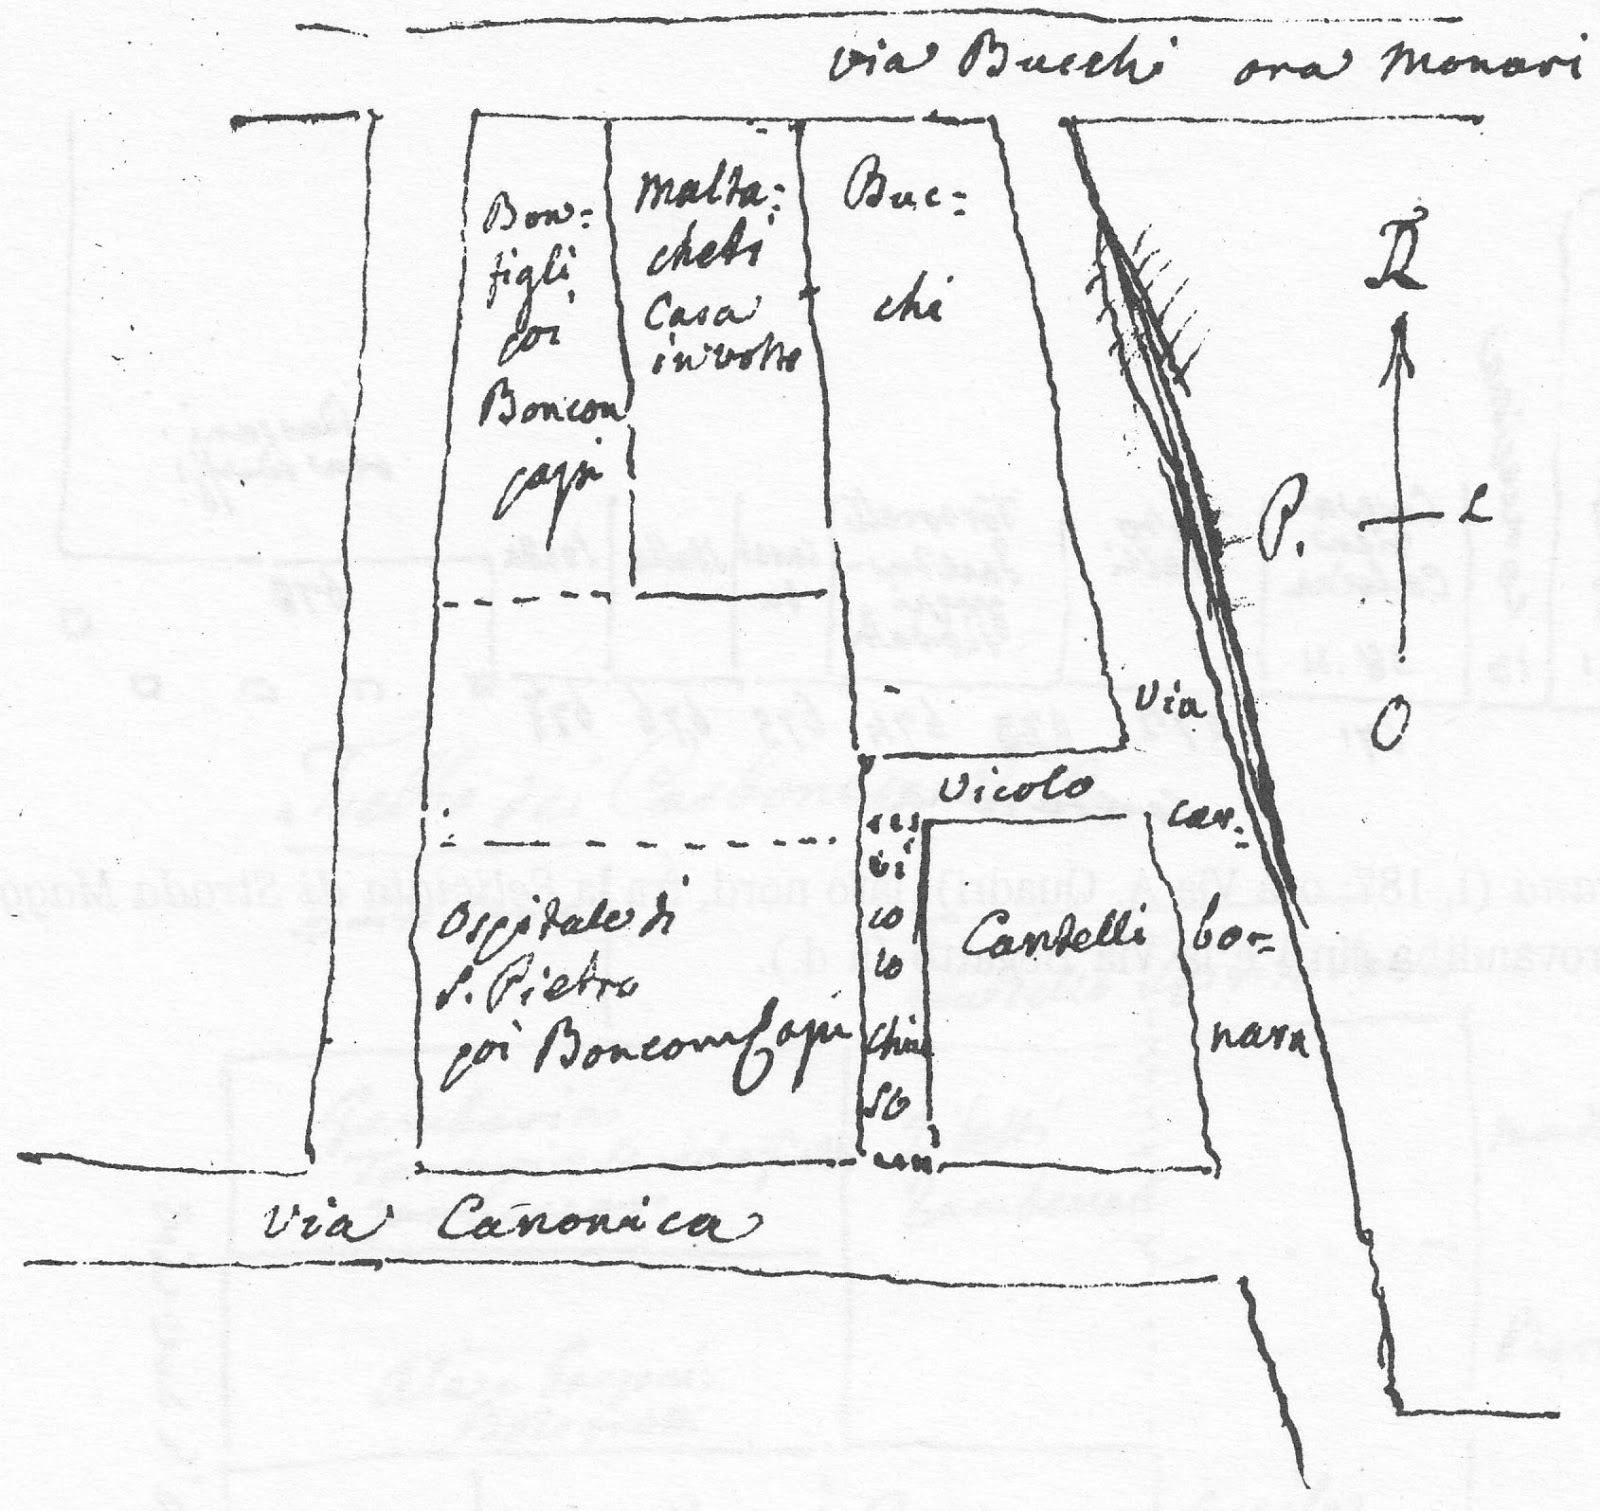 via Bucchi ora Monari
Bon=
figli
poi
Boncom
pagni
Malta=
cheti
Casa
in volte
Buc=
chi
P.
L
O
via
car=
bo=
nara
vicolo
vi
co
lo
chiu
so
Cantelli
Ospitale di
S. Pietro
poi Boncompagni
via Canonica